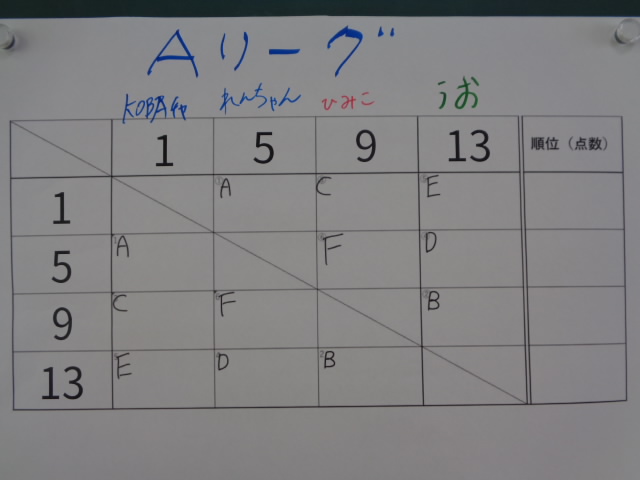 Aリーグ
れんちゃん ひみこ うお
1 5 9 13 順位（点数）
1 A C E
5 A F D
9 C F B
13 E D B